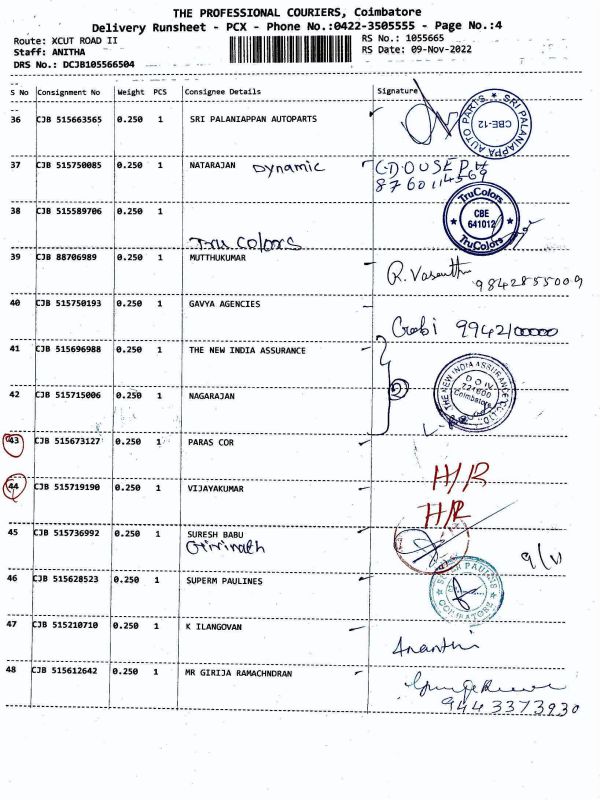 THE PROFESSIONAL COURIERS, Coimbatore
Delivery Runsheet - PCX - Phone No.:0422-3505555 - Page No.:4
Route: XCUT ROAD II RS No.: 1055665
Staff: ANITHA RS Date: 09-Nov-2022
DRS No.: DCJB105566504
S No Consignment No Weight PCS Consignee Details Signature
36 CJB 515663565 0.250 1 SRI PALANIAPPAN AUTOPARTS
SRI PALANIAPPA AUTO PARTS
CBE-12
37 CJB 515750085 0.250 1 NATARAJAN Dynamic C.D.OUSEPH
8760114569
38 CJB 515589706 0.250 1
TruColors
CBE
641012
TruColors
Tru Colors
39 CJB 88706989 0.250 1 MUTTHUKUMAR R. Vasanthi
9842855009
40 CJB 515750193 0.250 1 GAVYA AGENCIES
Gobi 9942100000
41 CJB 515696988 0.250 1 THE NEW INDIA ASSURANCE
THE NEW INDIA ASSURANCE CO. LTD.
Coimbatore
42 CJB 515715006 0.250 1 NAGARAJAN
2
43 CJB 515673127 0.250 1 PARAS COR
H/R
44 CJB 515719190 0.250 1 VIJAYAKUMAR
H/R
45 CJB 515736992 0.250 1 SURESH BABU
9/11
46 CJB 515628523 0.250 1 SUPERM PAULINES
SUPER PAULINS
COIMBATORE
47 CJB 515210710 0.250 1 K ILANGOVAN
Ananthi
48 CJB 515612642 0.250 1 MR GIRIJA RAMACHNDRAN
9443373930